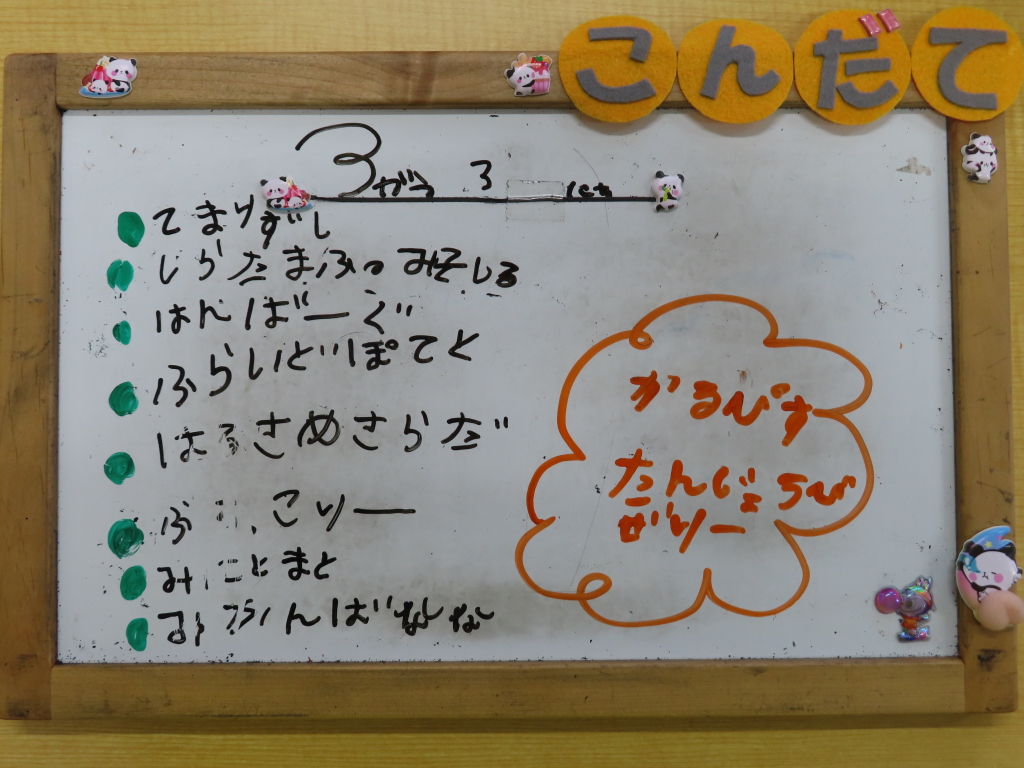 こんだて
3がつ 3 にち
てまりずし
しらたまふのみそしる
はんばーぐ
ふらいどぽてと
はるさめさらだ
ぶ こりー
みにとまと
ばなな
かるぴす
たんじょうび
ぜりー